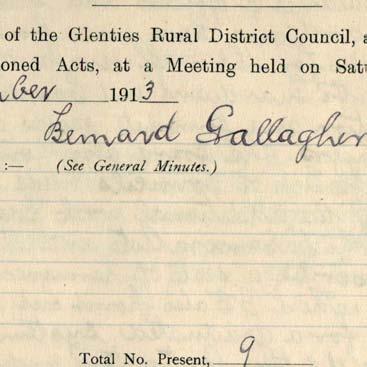 of the Glenties Rural District Council, a
ioned Acts, at a Meeting held on Satu
mber 1913
Bernard Gallagher
:— (See General Minutes.)
Total No. Present, 9